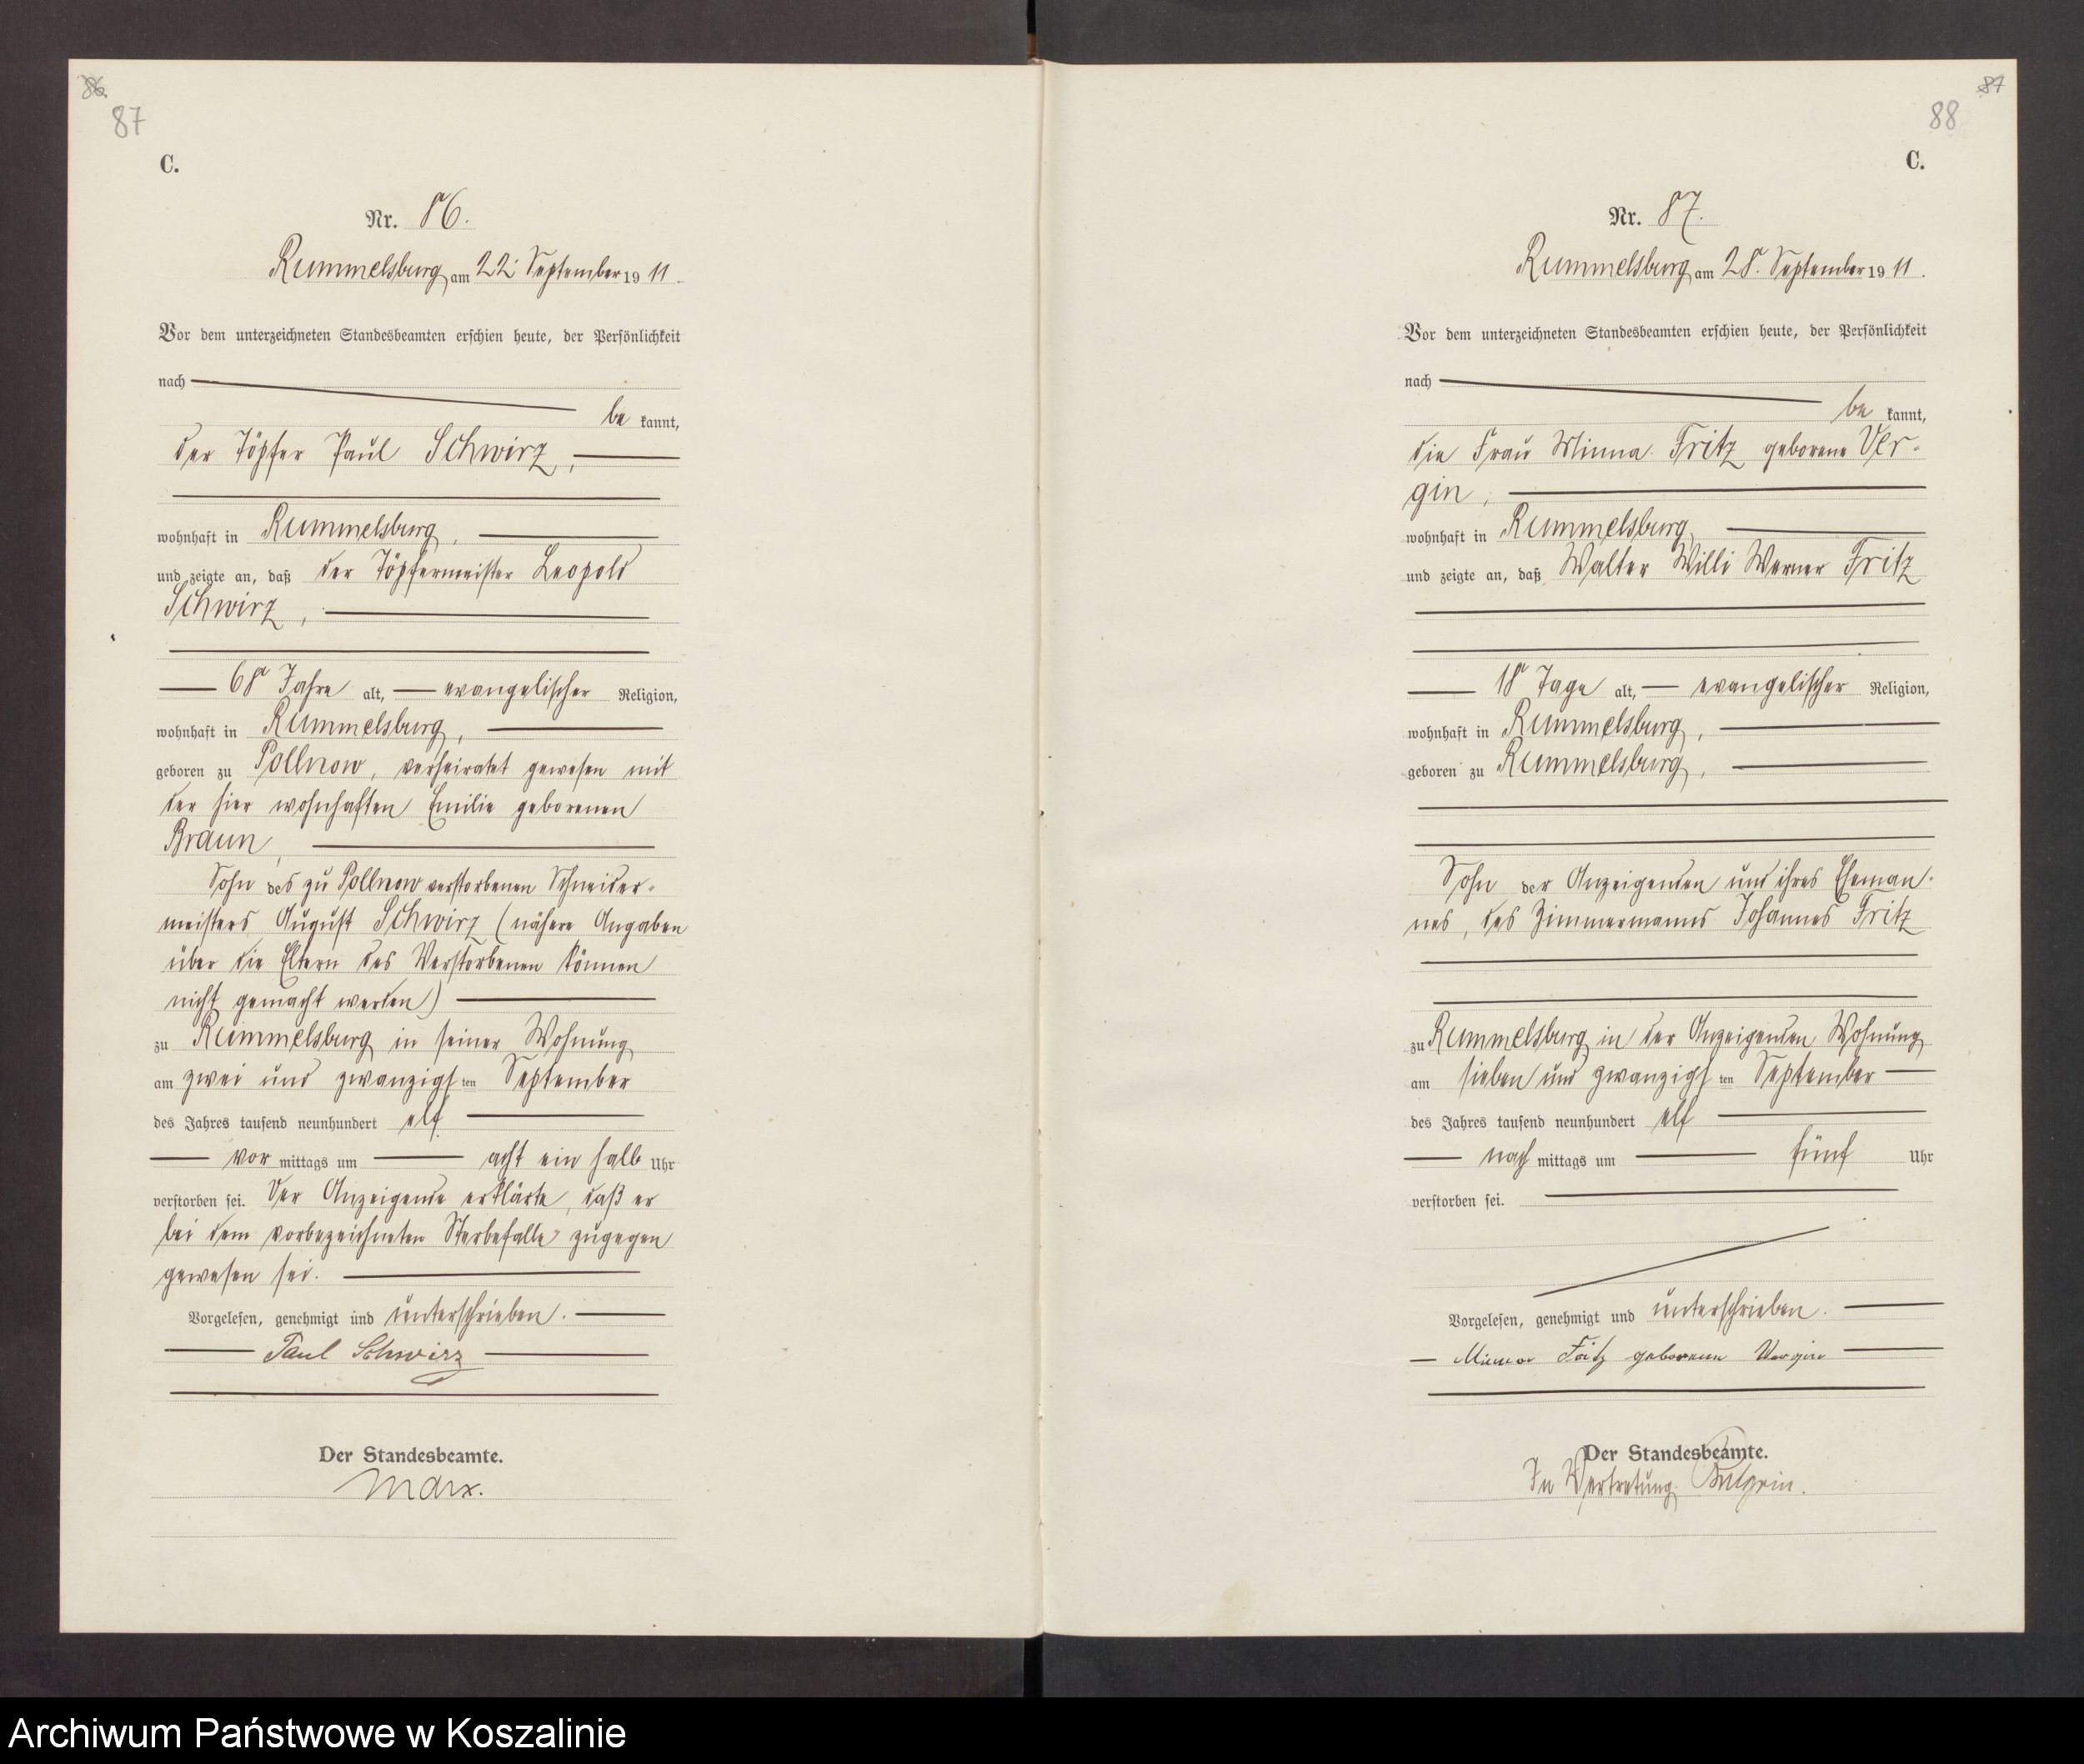 86.
87
C.
Nr. 86.
Rummelsburg am 22. September 1911.
Vor dem unterzeichneten Standesbeamten erschien heute, der Persönlichkeit
nach
be kannt,
der Töpfer Paul Schwirz,
wohnhaft in Rummelsburg,
und zeigte an, daß der Töpfermeister Leopold
Schwirz,
68 Jahre alt, evangelischer Religion,
wohnhaft in Rummelsburg,
geboren zu Pollnow, verheiratet gewesen mit
der hier wohnhaften Emilie geborenen
Braun,
Sohn des zu Pollnow verstorbenen Schneider-
meisters August Schwirz (nähere Angaben
über die Eltern des Verstorbenen können
nicht gemacht werden)
zu Rummelsburg in seiner Wohnung
am zwei und zwanzigsten September
des Jahres tausend neunhundert elf
vor mittags um acht ein halb Uhr
verstorben sei. Der Anzeigende erklärte, daß er
bei dem vorbezeichneten Sterbefalle zugegen
gewesen sei.
Vorgelesen, genehmigt und unterschrieben.
Paul Schwirz
Der Standesbeamte.
Marx.
87
88
C.
Nr. 87.
Rummelsburg am 28. September 1911.
Vor dem unterzeichneten Standesbeamten erschien heute, der Persönlichkeit
nach
be kannt,
die Frau Minna Fritz geborene Ver-
gin,
wohnhaft in Rummelsburg
und zeigte an, daß Walter Willi Werner Fritz
18 Tage alt, evangelischer Religion,
wohnhaft in Rummelsburg,
geboren zu Rummelsburg,
Sohn der Anzeigenden und ihres Eheman-
nes, des Zimmermanns Johannes Fritz
zu Rummelsburg in der Anzeigenden Wohnung
am sieben und zwanzigsten September
des Jahres tausend neunhundert elf
nach mittags um fünf Uhr
verstorben sei.
Vorgelesen, genehmigt und unterschrieben.
Minna Fritz geborene Vergin
Der Standesbeamte.
In Vertretung.
Archiwum Państwowe w Koszalinie